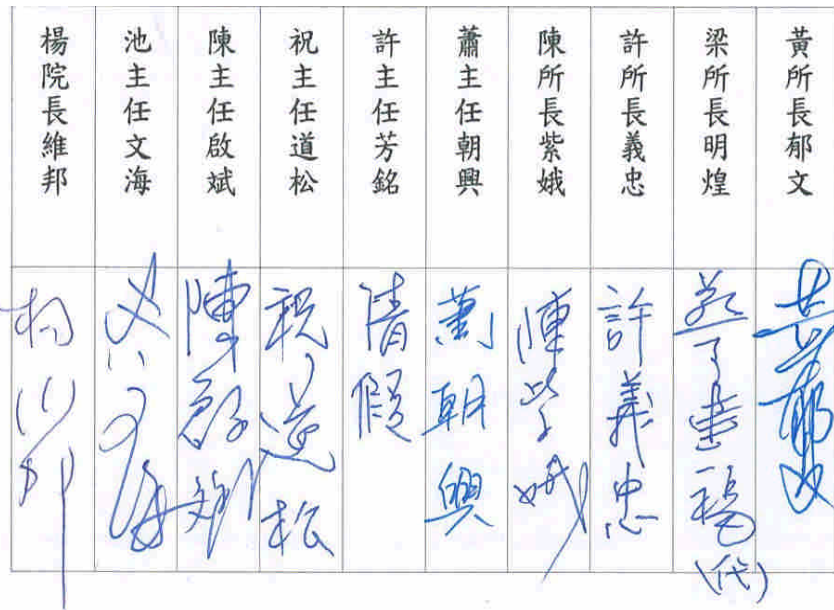 黃所長郁文
梁所長明煌
許所長義忠
陳所長紫娥
蕭主任朝興
許主任芳銘
祝主任道松
陳主任啟斌
池主任文海
楊院長維邦
黃郁文
(代)
許義忠
陳紫娥
蕭朝興
請假
祝道松
陳啟斌